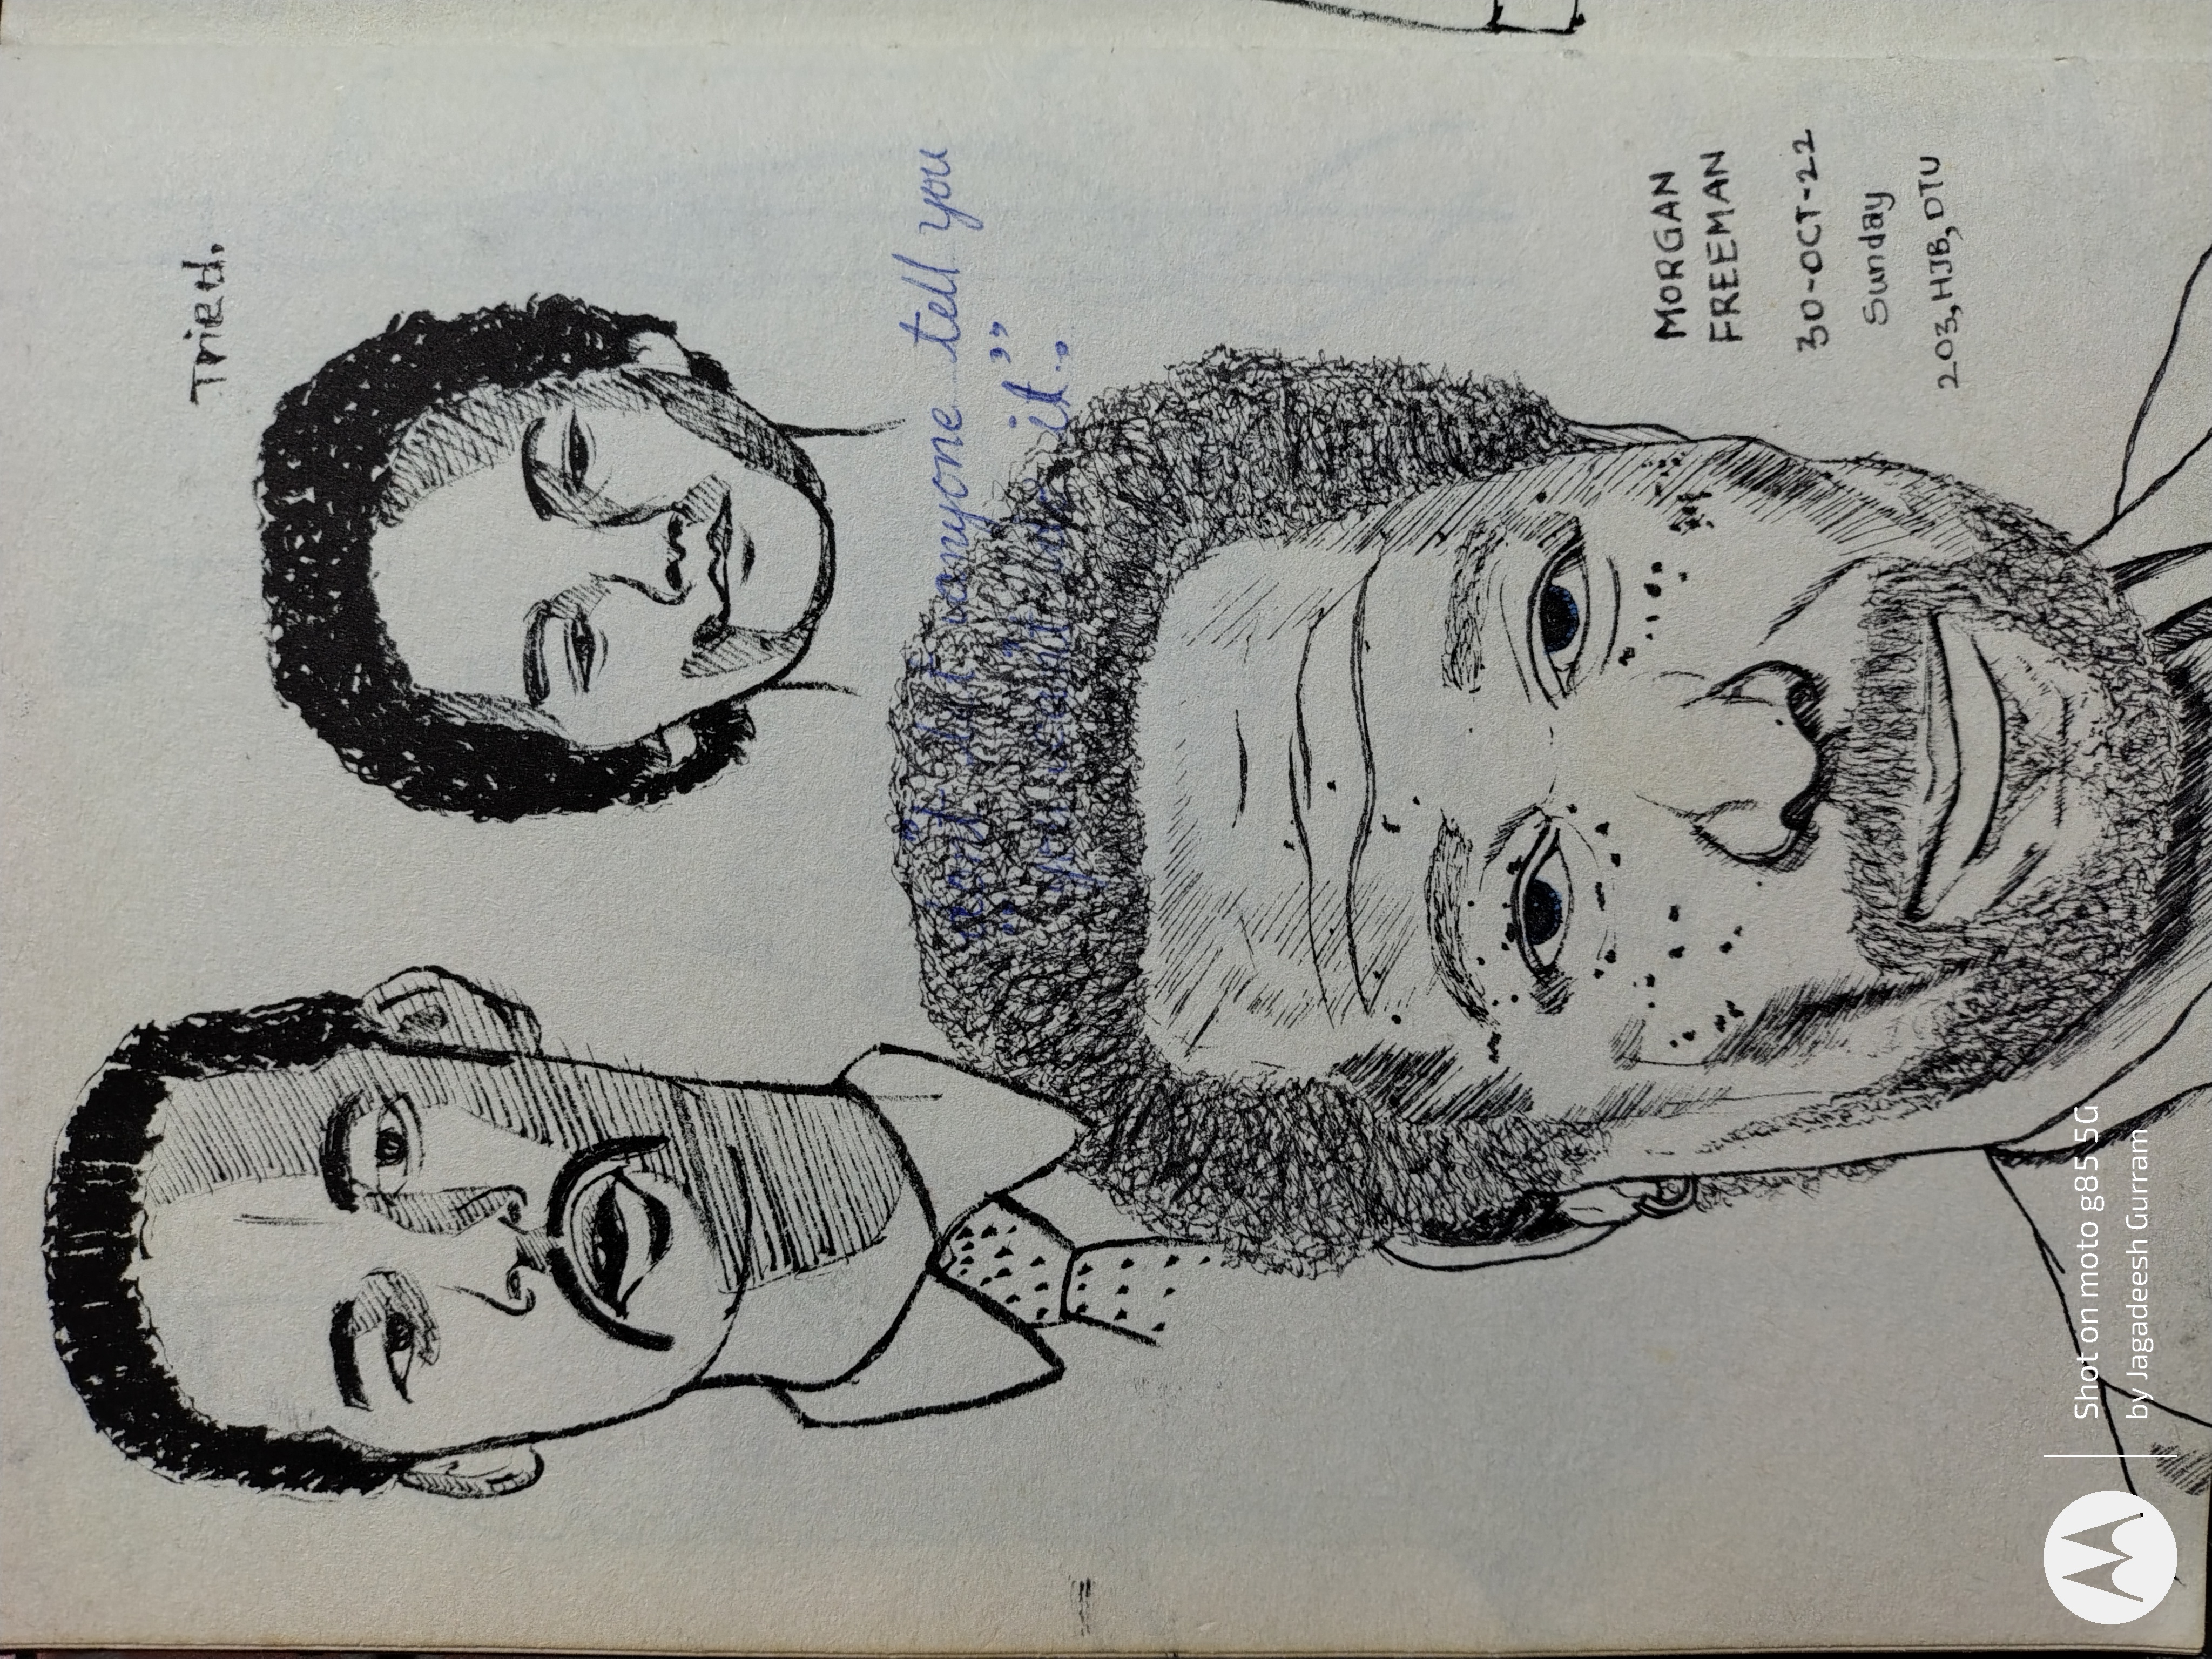 Tried.
don't let anyone tell you
you can't do it."
MORGAN
FREEMAN
30-OCT-22
Sunday
203, HJB, DTU
Shot on moto g85 5G
by Jagadeesh Gurram